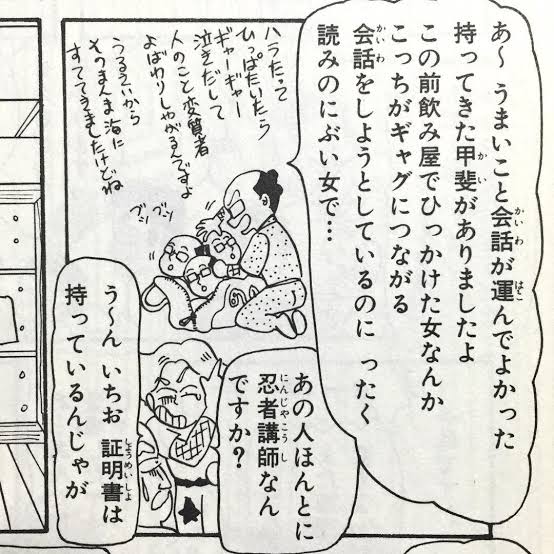 あ〜 うまいこと会話が運んでよかった
持ってきた甲斐がありましたよ
この前飲み屋でひっかけた女なんか
こっちがギャグにつながる
会話をしようとしているのに ったく
読みのにぶい女で…
ハラたって
ひっぱたいたら
ギャーギャー
泣きだして
人のこと変質者
よばわりしゃがるんですよ
うるさいから
そのまんま海に
すててきましたけどね
ブンブン
あの人ほんとに
忍者講師なん
ですか?
う〜ん いちお 証明書は
持っているんじゃが